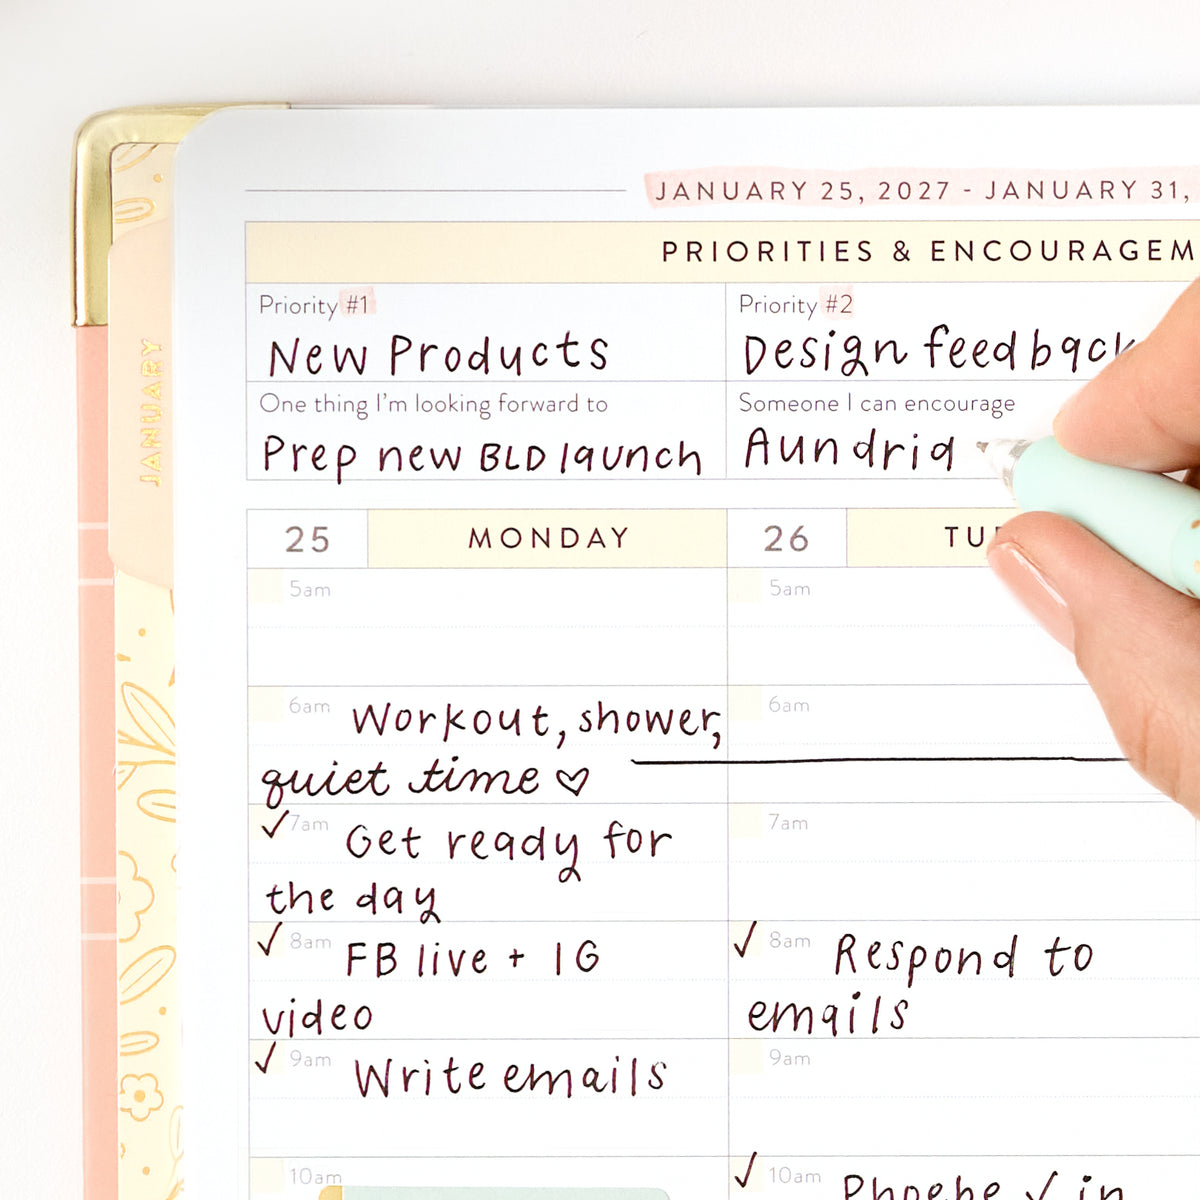 JANUARY 25, 2027 - JANUARY 31,
PRIORITIES & ENCOURAGEM
Priority #1
New Products
Priority #2
Design feedback
One thing I'm looking forward to
Prep new BLD launch
Someone I can encourage
Aundria
JANUARY
25 MONDAY
5am
6am Workout, shower,
quiet time ♡
✓ 7am Get ready for
the day
✓ 8am FB live + IG
video
✓ 9am Write emails
10am
26 TU
5am
6am
7am
✓ 8am Respond to
emails
9am
✓ 10am Phoebe ✓ in